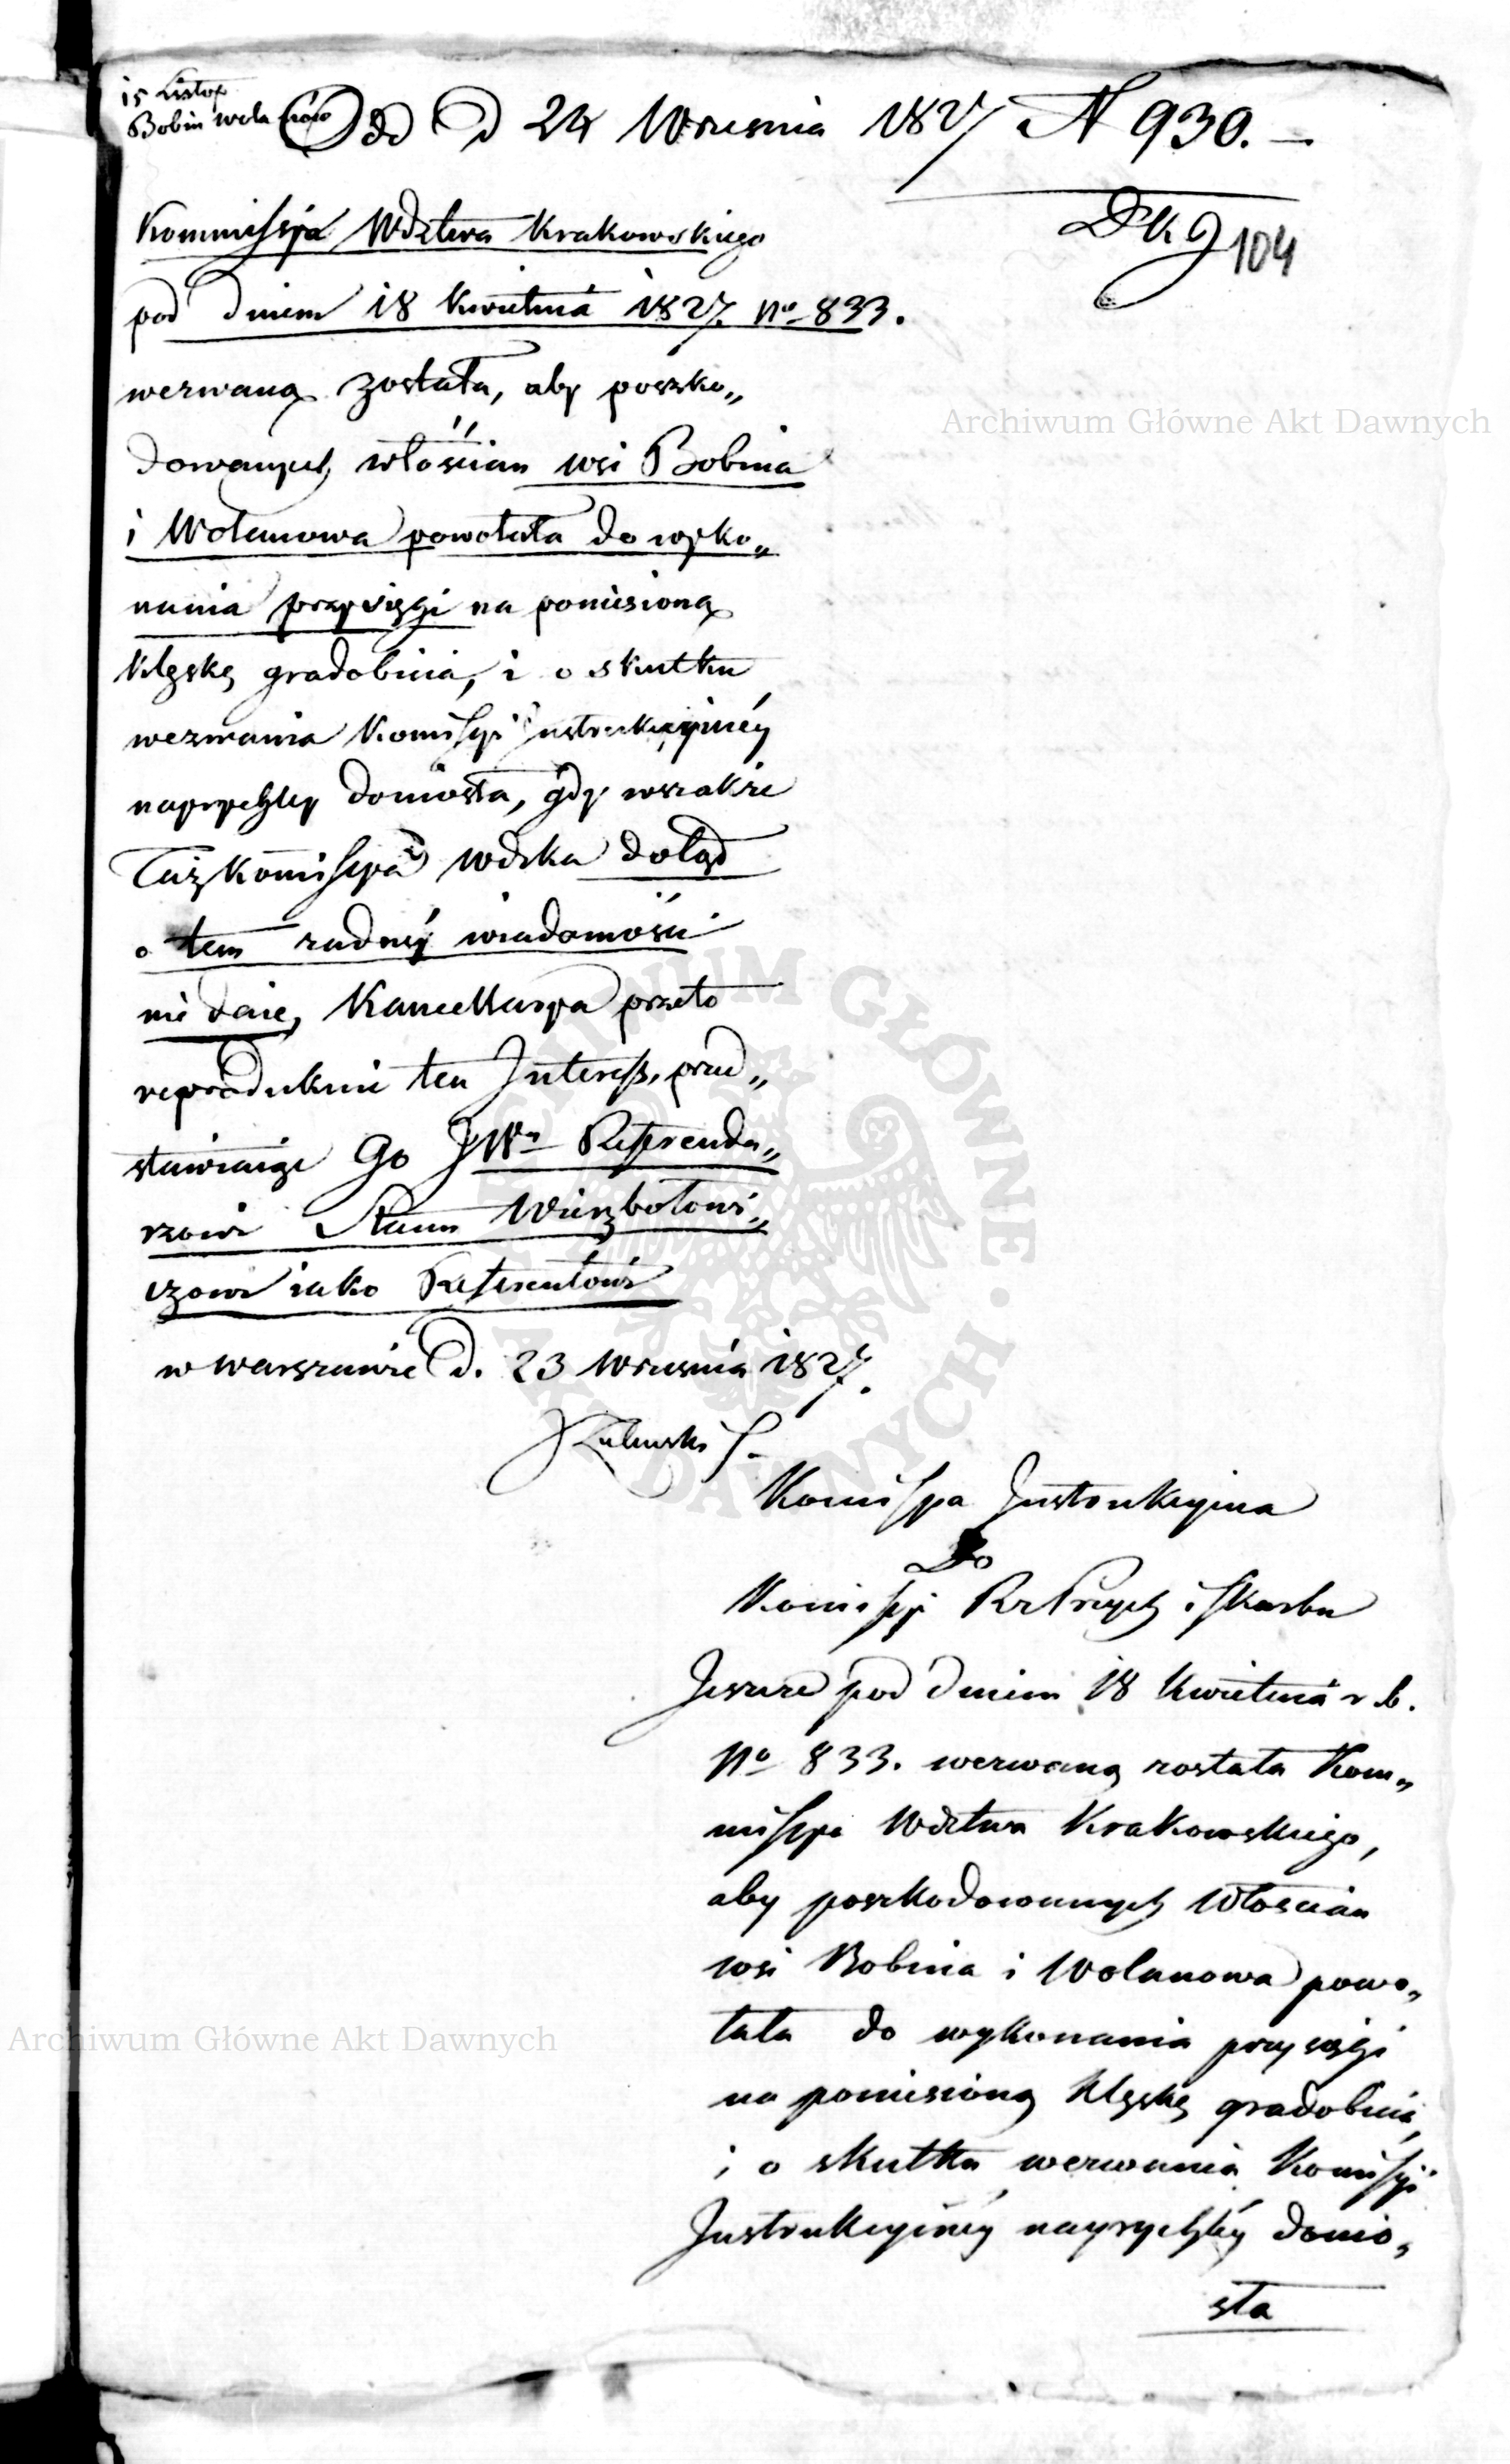 15 Listop
Bobin Wolanów
Odd d 24 Wrzesnia 1827 N 930. —
DKg
104
Kommissya Wdztwa Krakowskiego
pod dniem 18 Kwietnia 1827. No 833.
wezwaną została, aby poszko„
dowanych włościan wsi Bobina
i Wolanowa powołała do wyko„
nania przysięgi na poniesioną
klęskę gradobicia, i o skutku
wezwania Komissyi Instrukcyiney
nayrychley doniosła, gdy wszakże
Taż Komissya Wdzka dotąd
o tem żadney wiadomości
nie daie, Kancellarya przeto
reprodukuie ten Interess, przed„
stawiaiąc Go JWu Referenda„
rzowi Stanu Wierzbołowi„
czowi iako Referentowi
w Warszawie d. 23 Wrzesnia 1827.
Komissya Instrukcyina
Do
Komissyi Rz Przych i Skarbu
Jeszcze pod dniem 18 Kwietnia r. b.
No 833. wezwaną została Kom„
missya Wdztwa Krakowskiego,
aby poszkodowanych Włościan
wsi Bobina i Wolanowa powo„
łała do wykonania przysięgi
na poniesioną klęskę gradobicia,
i o skutku wezwania Komissyi
Instrukcyiney nayrychley donio„
sła
Archiwum Główne Akt Dawnych
Archiwum Główne Akt Dawnych
ARCHIWUM GŁÓWNE AKT DAWNYCH